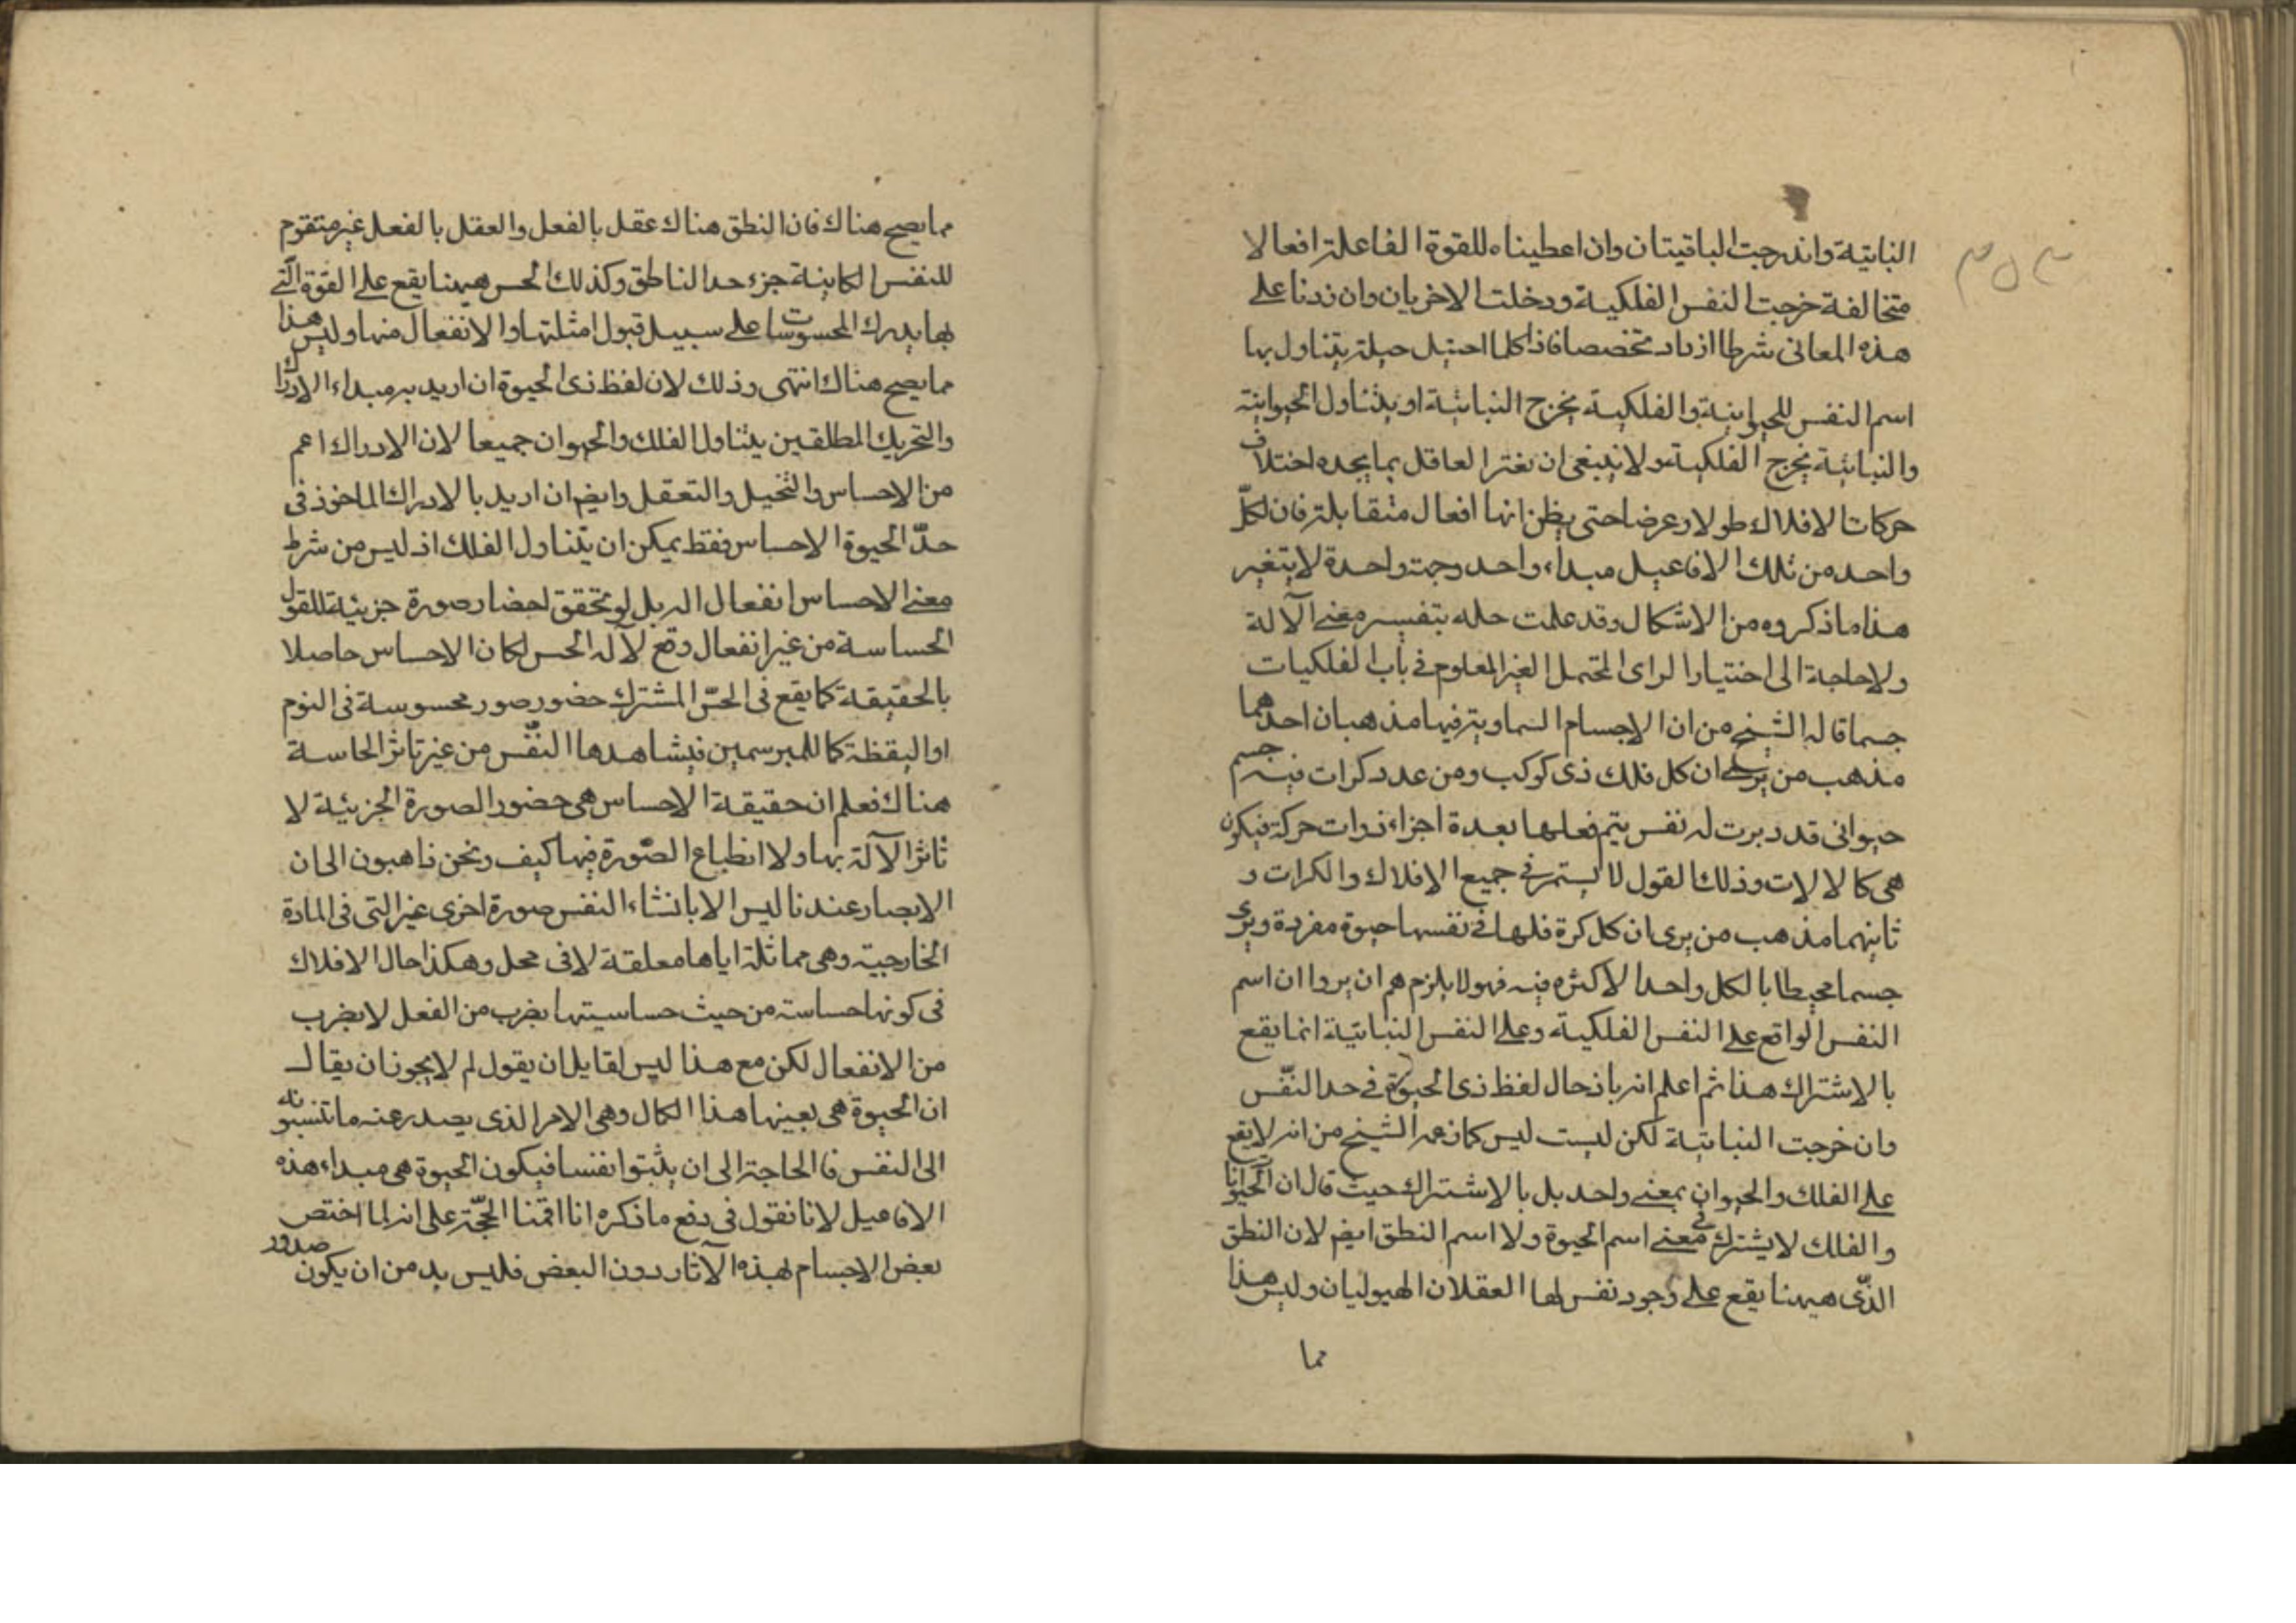 النباتية واندرجت الباقيتان وان اعطيناه للقوة الفاعلة افعالا
متخالفة خرجت النفس الفلكية ودخلت الاخريان وان زدنا على
هذه المعانى شرطا ازداد تخصصا فاذا كلما احتيل حيلة يتناول بها
اسم النفس للحيوانية والفلكية يخرج النباتية او يتناول الحيوانية
والنباتية يخرج الفلكية ولا ينبغى ان يغتر العاقل بما يجده اختلاف
حركات الافلاك طولا وعرضا حتى يظن انها افعال متقابلة فان لكلّ
واحد من تلك الافاعيل مبداء واحد وجهة واحدة لا يتغير
هذا ما ذكروه من الاشكال وقد علمت حله بتفسير معنى الآلة
ولا حاجة الى اختيار الراى المحتمل الغير المعلوم فى باب الفلكيات
حسما قاله الشيخ من ان الاجسام السماوية فيها مذهبان احدهما
مذهب من يرى ان كل فلك ذى كوكب ومن عدد كرات فيه جسم
حيوانى قد دبرت له نفس يتم فعلها بعدة اجزاء ذوات حركة فيكون
هى كالالات وذلك القول لا يستمر فى جميع الافلاك والكرات و
ثانيهما مذهب من يرى ان كل كرة فلها فى نفسها حيوة مفردة ويرى
جسما محيطا بالكل واحدا لا كثره فيه فهولا يلزم هم ان يروا ان اسم
النفس الواقع على النفس الفلكية وعلى النفس النباتية انما يقع
بالاشتراك هذا ثم اعلم انه بان حال لفظ ذى الحيوة فى حد النفّس
وان خرجت النباتية لكن ليست ليس كما زعمه الشيخ من انه لا يقع
على الفلك والحيوان بمعنى واحد بل بالاشتراك حيث قال ان الحيوانات
والفلك لا يشترك فى معنى اسم الحيوة ولا اسم النطق ايضم لان النطق
الذّى هيهنا يقع على وجود نفس لها العقلان الهيوليان وليس هذا
مما
مما يصح هناك فان النطق هناك عقل بالفعل والعقل بالفعل غير متقوم
للنفس الكاينة جزء حد الناطق وكذلك الحس هيهنا يقع على القوة الّتى
بها يدرك المحسوسات على سبيل قبول امثلتها والانفعال منها وليس هذا
مما يصح هناك انتهى وذلك لان لفظ ذى الحيوة ان اريد به مبداء الادراك
والتحريك المطلقين يتناول الفلك والحيوان جميعا لان الادراك اعم
من الاحساس والتخيل والتعقل وايضم ان اريد بالادراك الماخوذ فى
حدّ الحيوة الاحساس فقط يمكن ان يتناول الفلك اذ ليس من شرط
معنى الاحساس انفعال اله بل لو تحقق احضار صورة جزيئة للقول
الحساسة من غير انفعال وقع لآله الحس لكان الاحساس حاصلا
بالحقيقة كما يقع فى الحسّ المشترك حضور صور محسوسة فى النوم
او اليقظة كما للمبرسمين فيشاهدها النفس من غير تاثر الحاسة
هناك فعلم ان حقيقة الاحساس هى حضور الصورة الجزيئة لا
تاثر الآلة بها ولا انطباع الصّورة فيها كيف ونحن ذاهبون الى ان
الابصار عندنا ليس الا بانشاء النفس صورة اخرى غير التى فى المادة
الخارجية وهى مماثلة اياها معلقة لا فى محل وهكذا حال الافلاك
فى كونها حساسة من حيث حساسيتها بضرب من الفعل لا بضرب
من الانفعال لكن مع هذا ليس لقايل ان يقول لم لا يجوز ان يقال
ان الحيوة هى بعينها هذا الكمال وهى الامر الذى يصدر عنه ما تنسبونه
الى النفس فما الحاجة الى ان يثبتوا نفسا فيكون الحيوة هى مبداء هذه
الافاعيل لانا نقول فى دفع ما ذكره انا اقمنا الحجّة على انه لما اختص
بعض الاجسام بهذه الآثار دون البعض فليس بد من ان يكون صدور